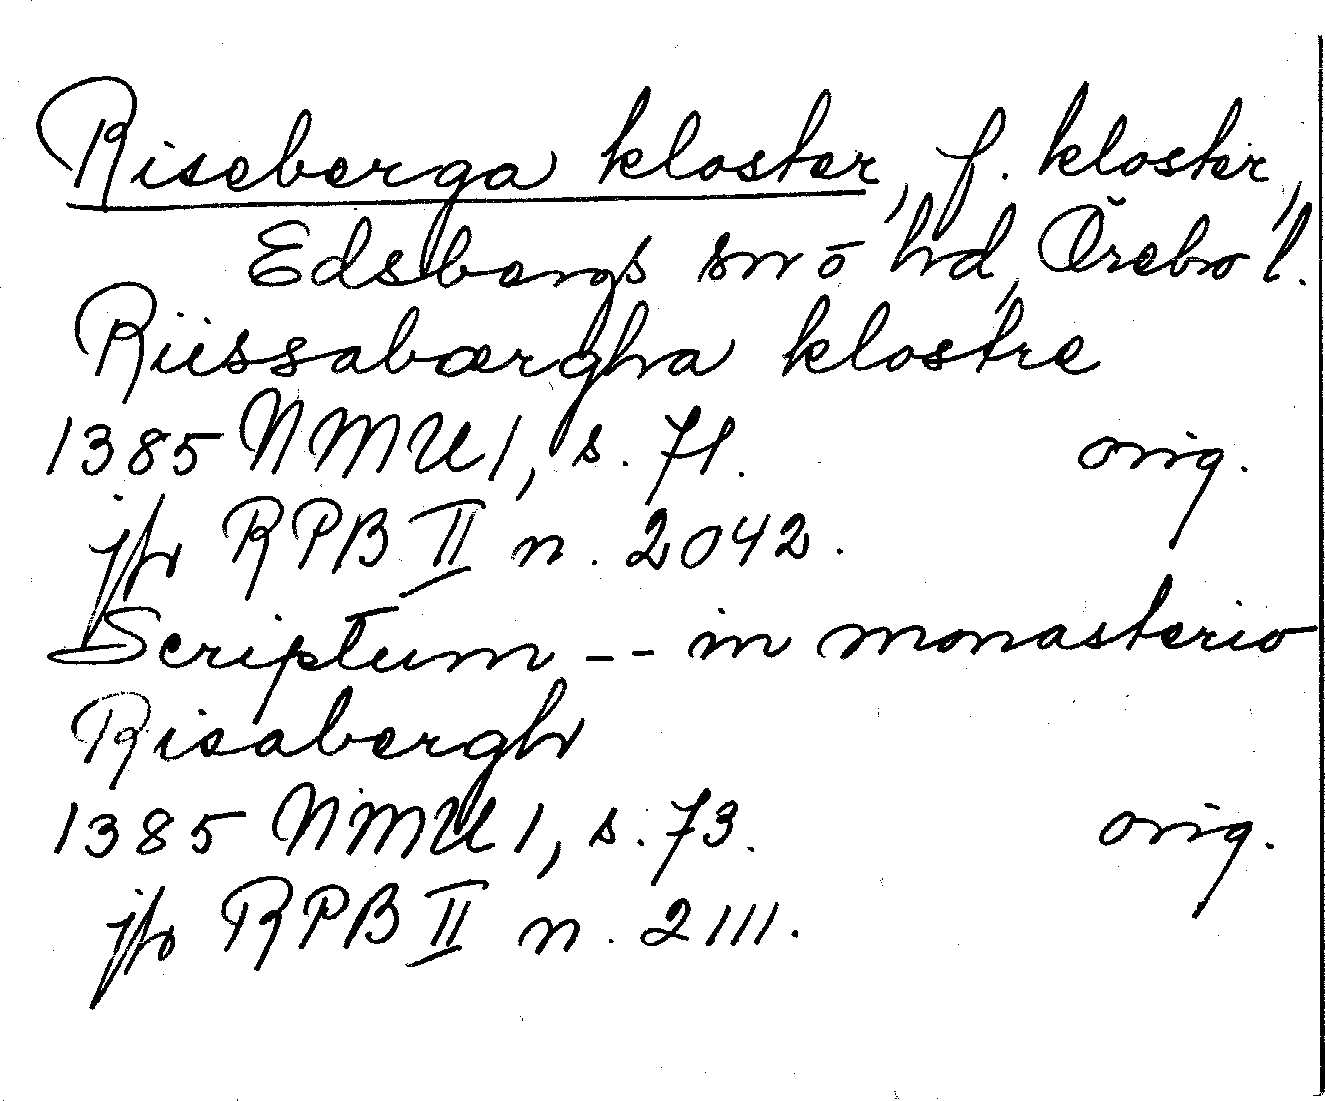 Riseberga kloster, f. kloster,
Edsbergs sn o hd, Örebro l.
Riissabærgha klostre
1385 NMU 1, s. 71. orig.
jfr RPB II n. 2042.
Scriptum -- in monasterio
Risabergh
1385 NMU 1, s. 73. orig.
jfr RPB II n. 2111.